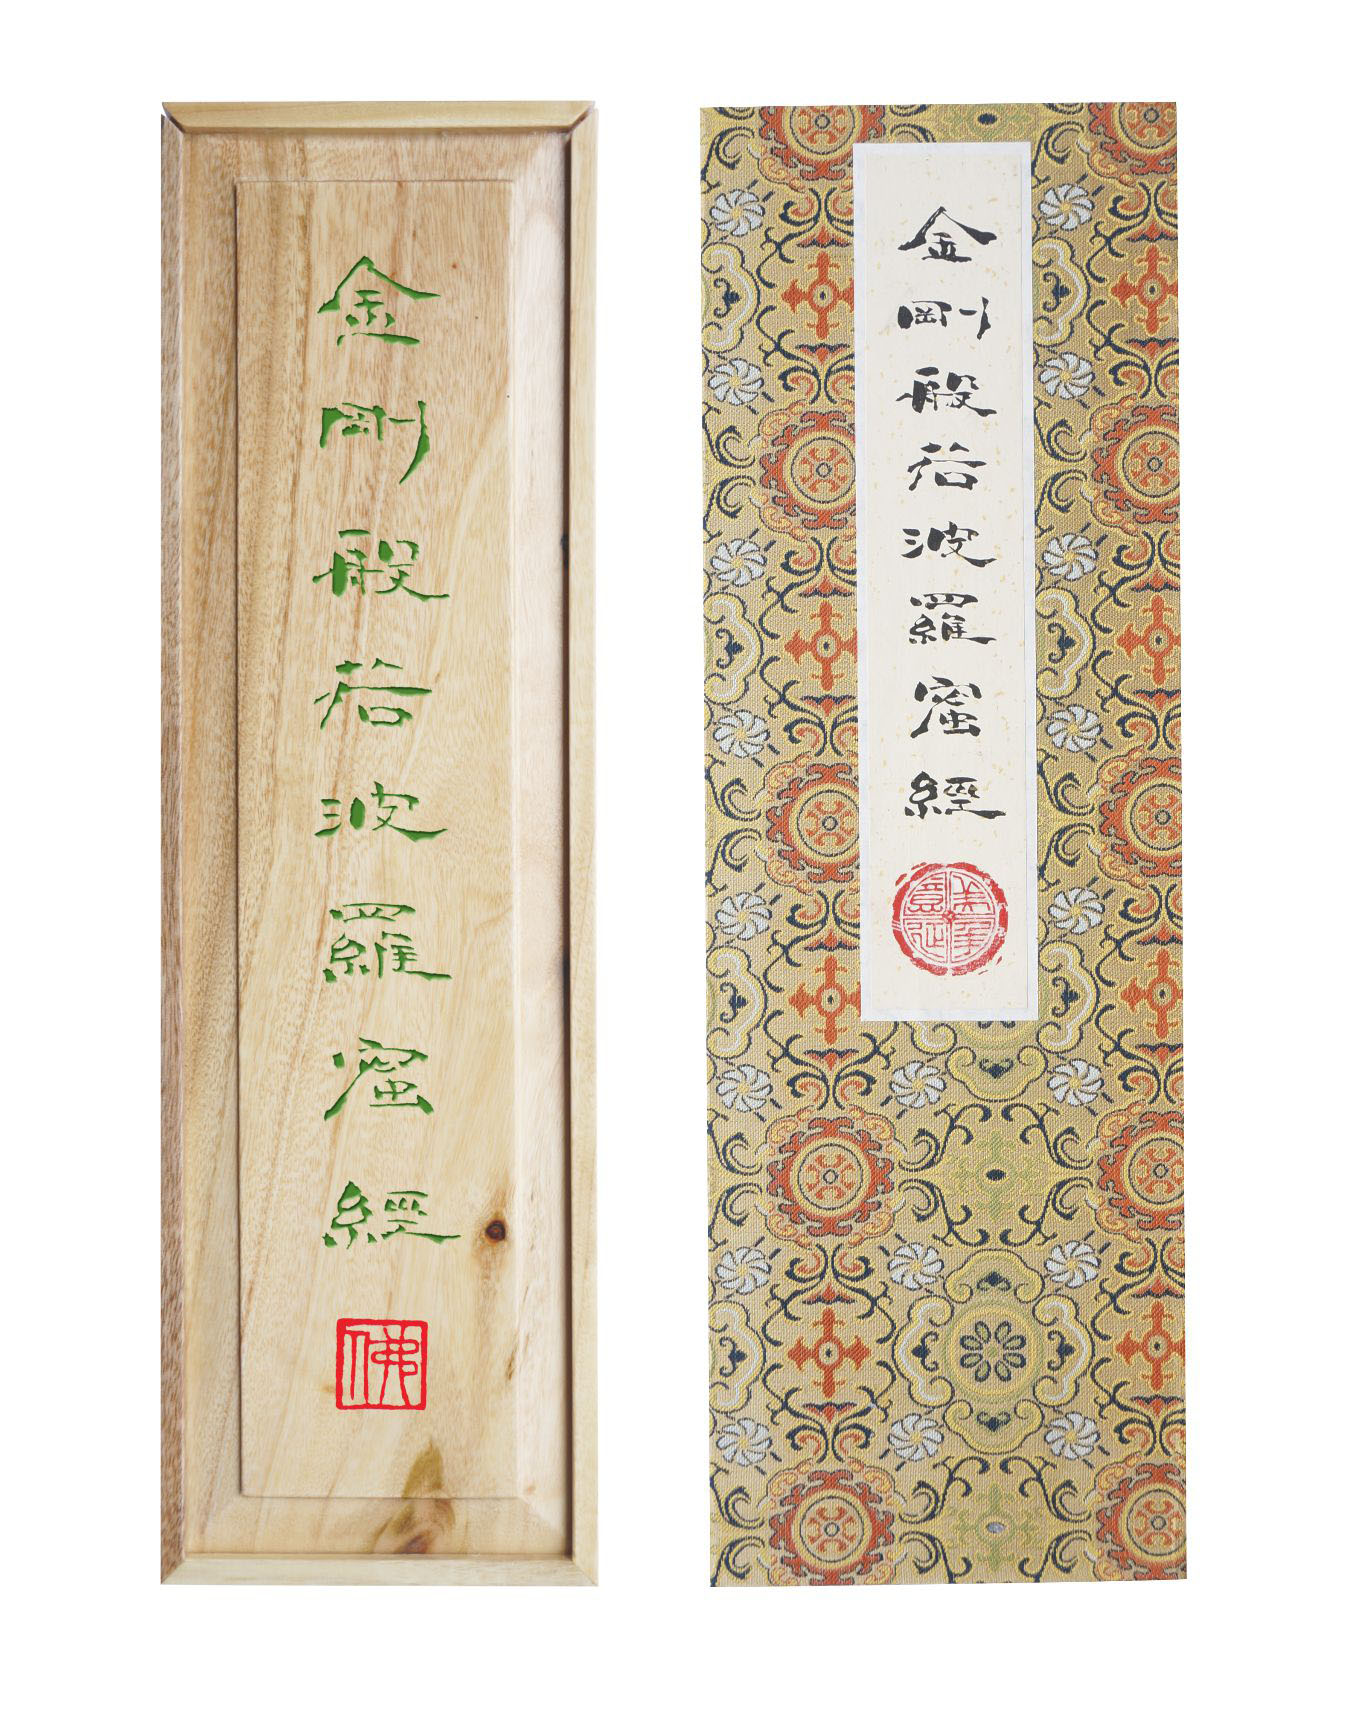 金剛般若波羅蜜經
佛
金剛般若波羅蜜經